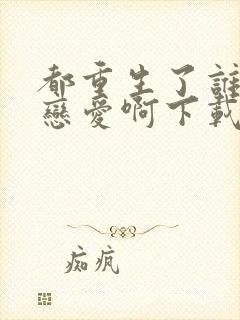 都重生了誰
戀愛啊下載
痴瘋